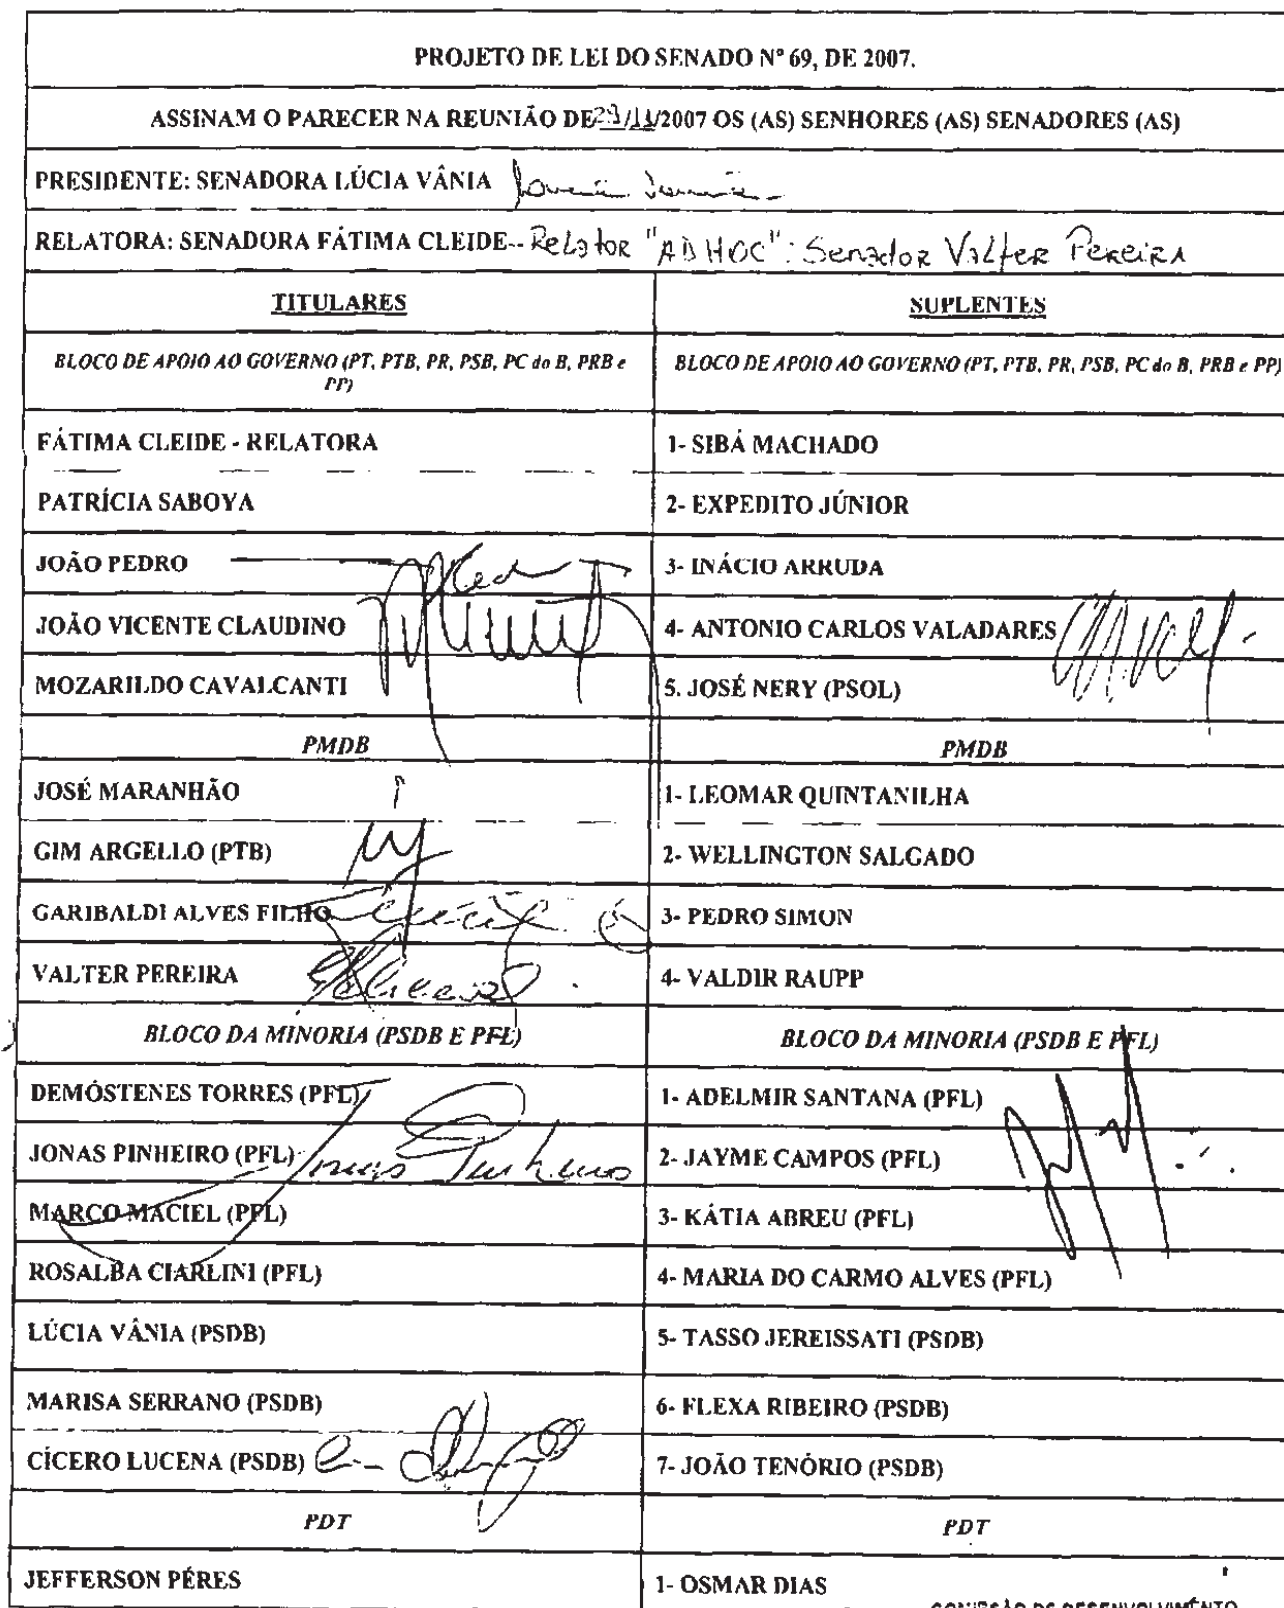 PROJETO DE LEI DO SENADO Nº 69, DE 2007.
ASSINAM O PARECER NA REUNIÃO DE /11/2007 OS (AS) SENHORES (AS) SENADORES (AS)
PRESIDENTE: SENADORA LÚCIA VÂNIA
RELATORA: SENADORA FÁTIMA CLEIDE-- Relator "AD HOC": Senador Valter Pereira
TITULARES
SUPLENTES
BLOCO DE APOIO AO GOVERNO (PT, PTB, PR, PSB, PC do B, PRB e
PP)
BLOCO DE APOIO AO GOVERNO (PT, PTB, PR, PSB, PC do B, PRB e PP)
FÁTIMA CLEIDE - RELATORA
1- SIBÁ MACHADO
PATRÍCIA SABOYA
2- EXPEDITO JÚNIOR
JOÃO PEDRO
3- INÁCIO ARRUDA
JOÃO VICENTE CLAUDINO
4- ANTONIO CARLOS VALADARES
MOZARILDO CAVALCANTI
5. JOSÉ NERY (PSOL)
PMDB
PMDB
JOSÉ MARANHÃO
1- LEOMAR QUINTANILHA
GIM ARGELLO (PTB)
2- WELLINGTON SALGADO
GARIBALDI ALVES FILHO
3- PEDRO SIMON
VALTER PEREIRA
4- VALDIR RAUPP
BLOCO DA MINORIA (PSDB E PFL)
BLOCO DA MINORIA (PSDB E PFL)
DEMÓSTENES TORRES (PFL)
1- ADELMIR SANTANA (PFL)
JONAS PINHEIRO (PFL) Jonas Pinheiro
2- JAYME CAMPOS (PFL)
MARCO MACIEL (PFL)
3- KÁTIA ABREU (PFL)
ROSALBA CIARLINI (PFL)
4- MARIA DO CARMO ALVES (PFL)
LÚCIA VÂNIA (PSDB)
5- TASSO JEREISSATI (PSDB)
MARISA SERRANO (PSDB)
6- FLEXA RIBEIRO (PSDB)
CÍCERO LUCENA (PSDB)
7- JOÃO TENÓRIO (PSDB)
PDT
PDT
JEFFERSON PÉRES
1- OSMAR DIAS
COMISSÃO DE DESENVOLVIMENTO